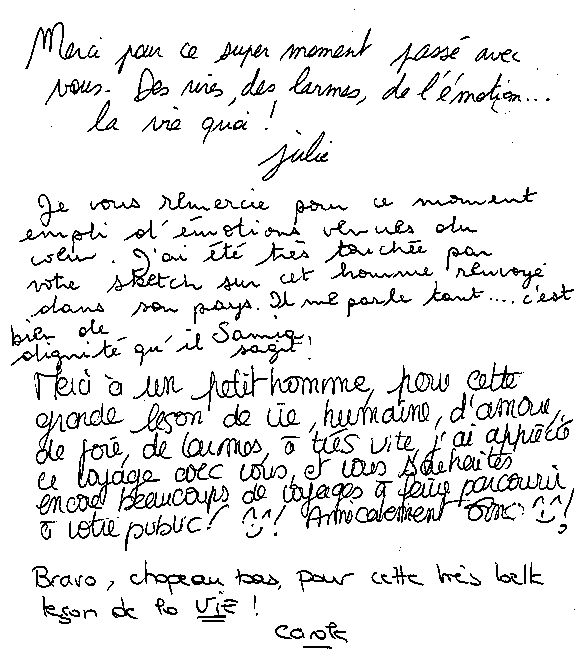 Merci pour ce super moment passé avec
vous. Des rires, des larmes, de l'émotion...
la vie quoi !
Julie
Je vous remercie pour ce moment
empli d'émotions venues du
cœur. J'ai été très touchée par
votre sketch sur cet homme renvoyé
dans son pays. Il me parle tant.... c'est
bien de
dignité qu'il s'agit!
Samia
Merci à un petit homme, pour cette
grande leçon de vie, humaine, d'amour,
de joie, de larmes, à très vite, j'ai apprécié
ce voyage avec vous, et vous souhaites
encore beaucoups de voyages à faire parcourir
à votre public! ! Amicalement !
Bravo, chapeau bas, pour cette très belle
leçon de la VIE !
Carole